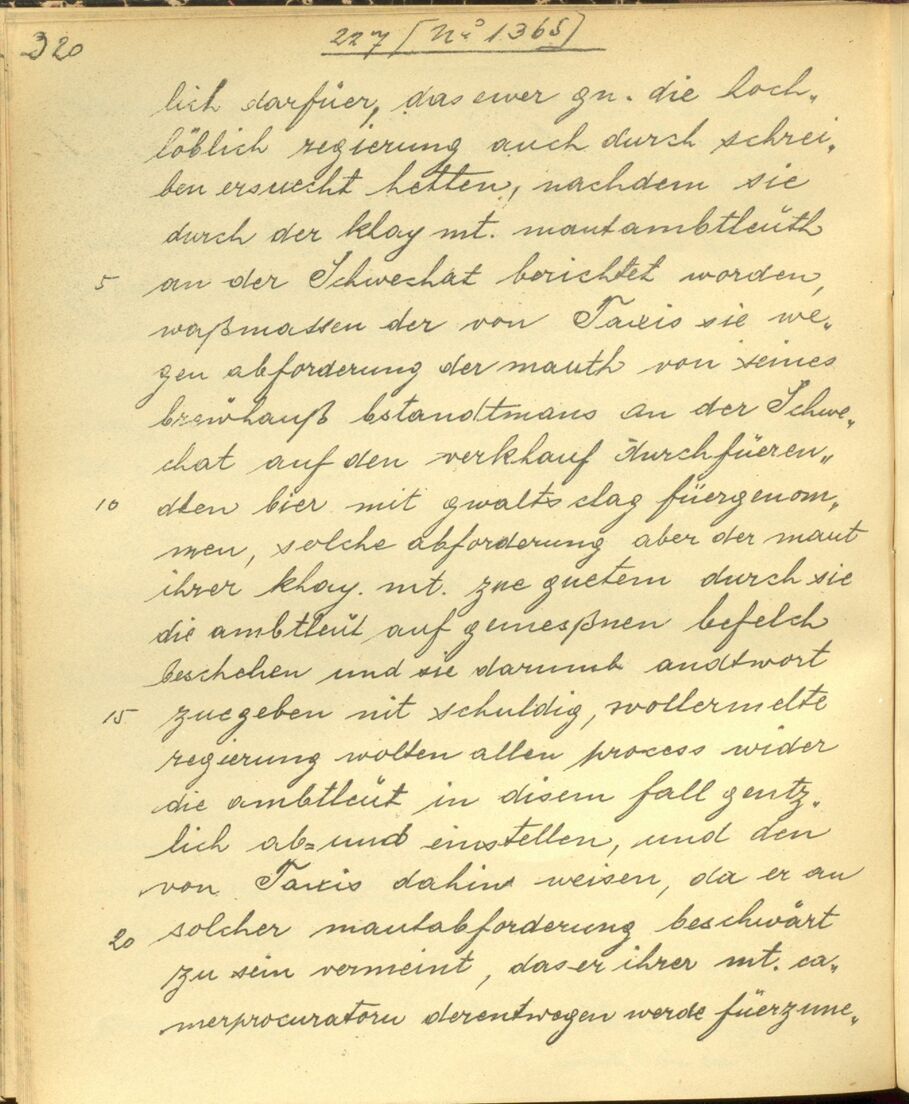 320
227 [No 1365]
lich darfüer, das ewer gn. die hoch„
löblich regierung auch durch schrei„
ben ersuecht hetten, nachdem sie
durch der klay mt. mautambtleüth
5 an der Schwechat berichtet worden,
waßmassen der von Taxis sie we„
gen abforderung der mauth von seines
brewhauß bstandtmans an der Schwe„
chat auf den verkhauf durchfüeren„
10 dten bier mit gwaltsclag füergenom„
men, solche abforderung aber der maut
ihrer khay. mt. zue guetem durch sie
die ambtleüt auf gemesßnen befelch
beschehen und sie darumb andtwort
15 zuegeben nit schuldig, wollermelte
regierung wolten allen process wider
die ambtleüt in disem fall gentz„
lich ab= und einstellen, und den
von Taxis dahin weisen, da er an
20 solcher mautabforderung beschwärt
zu sein vermeint, das er ihrer mt. ca„
merprocuratorn derentwegen werde füerzune„